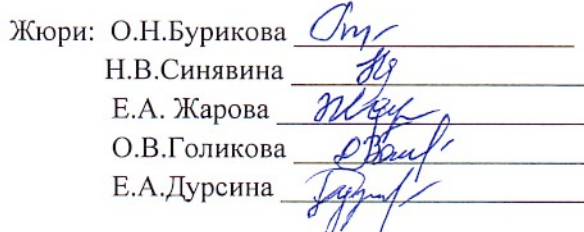 Жюри: О.Н.Бурикова
Н.В.Синявина
Е.А. Жарова
О.В.Голикова
Е.А.Дурсина